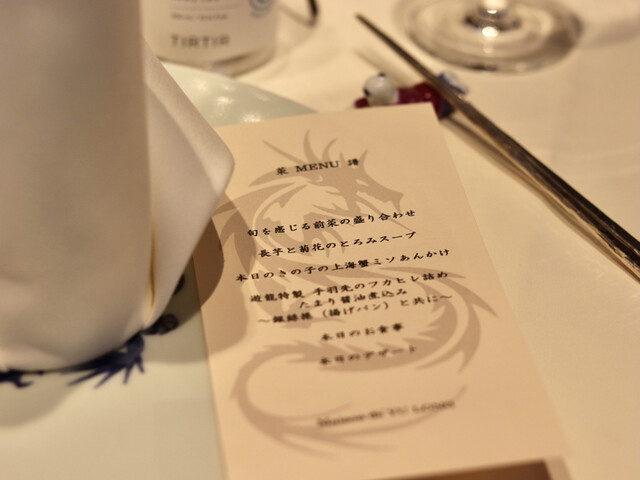 TIRTIR
菜 MENU 譜
旬を感じる前菜の盛り合わせ
長芋と菊花のとろみスープ
本日のきの子の上海蟹ミソあんかけ
遊龍特製 手羽先のフカヒレ詰め
たまり醤油煮込み
～銀絲捲（揚げパン）と共に～
本日のお食事
本日のデザート